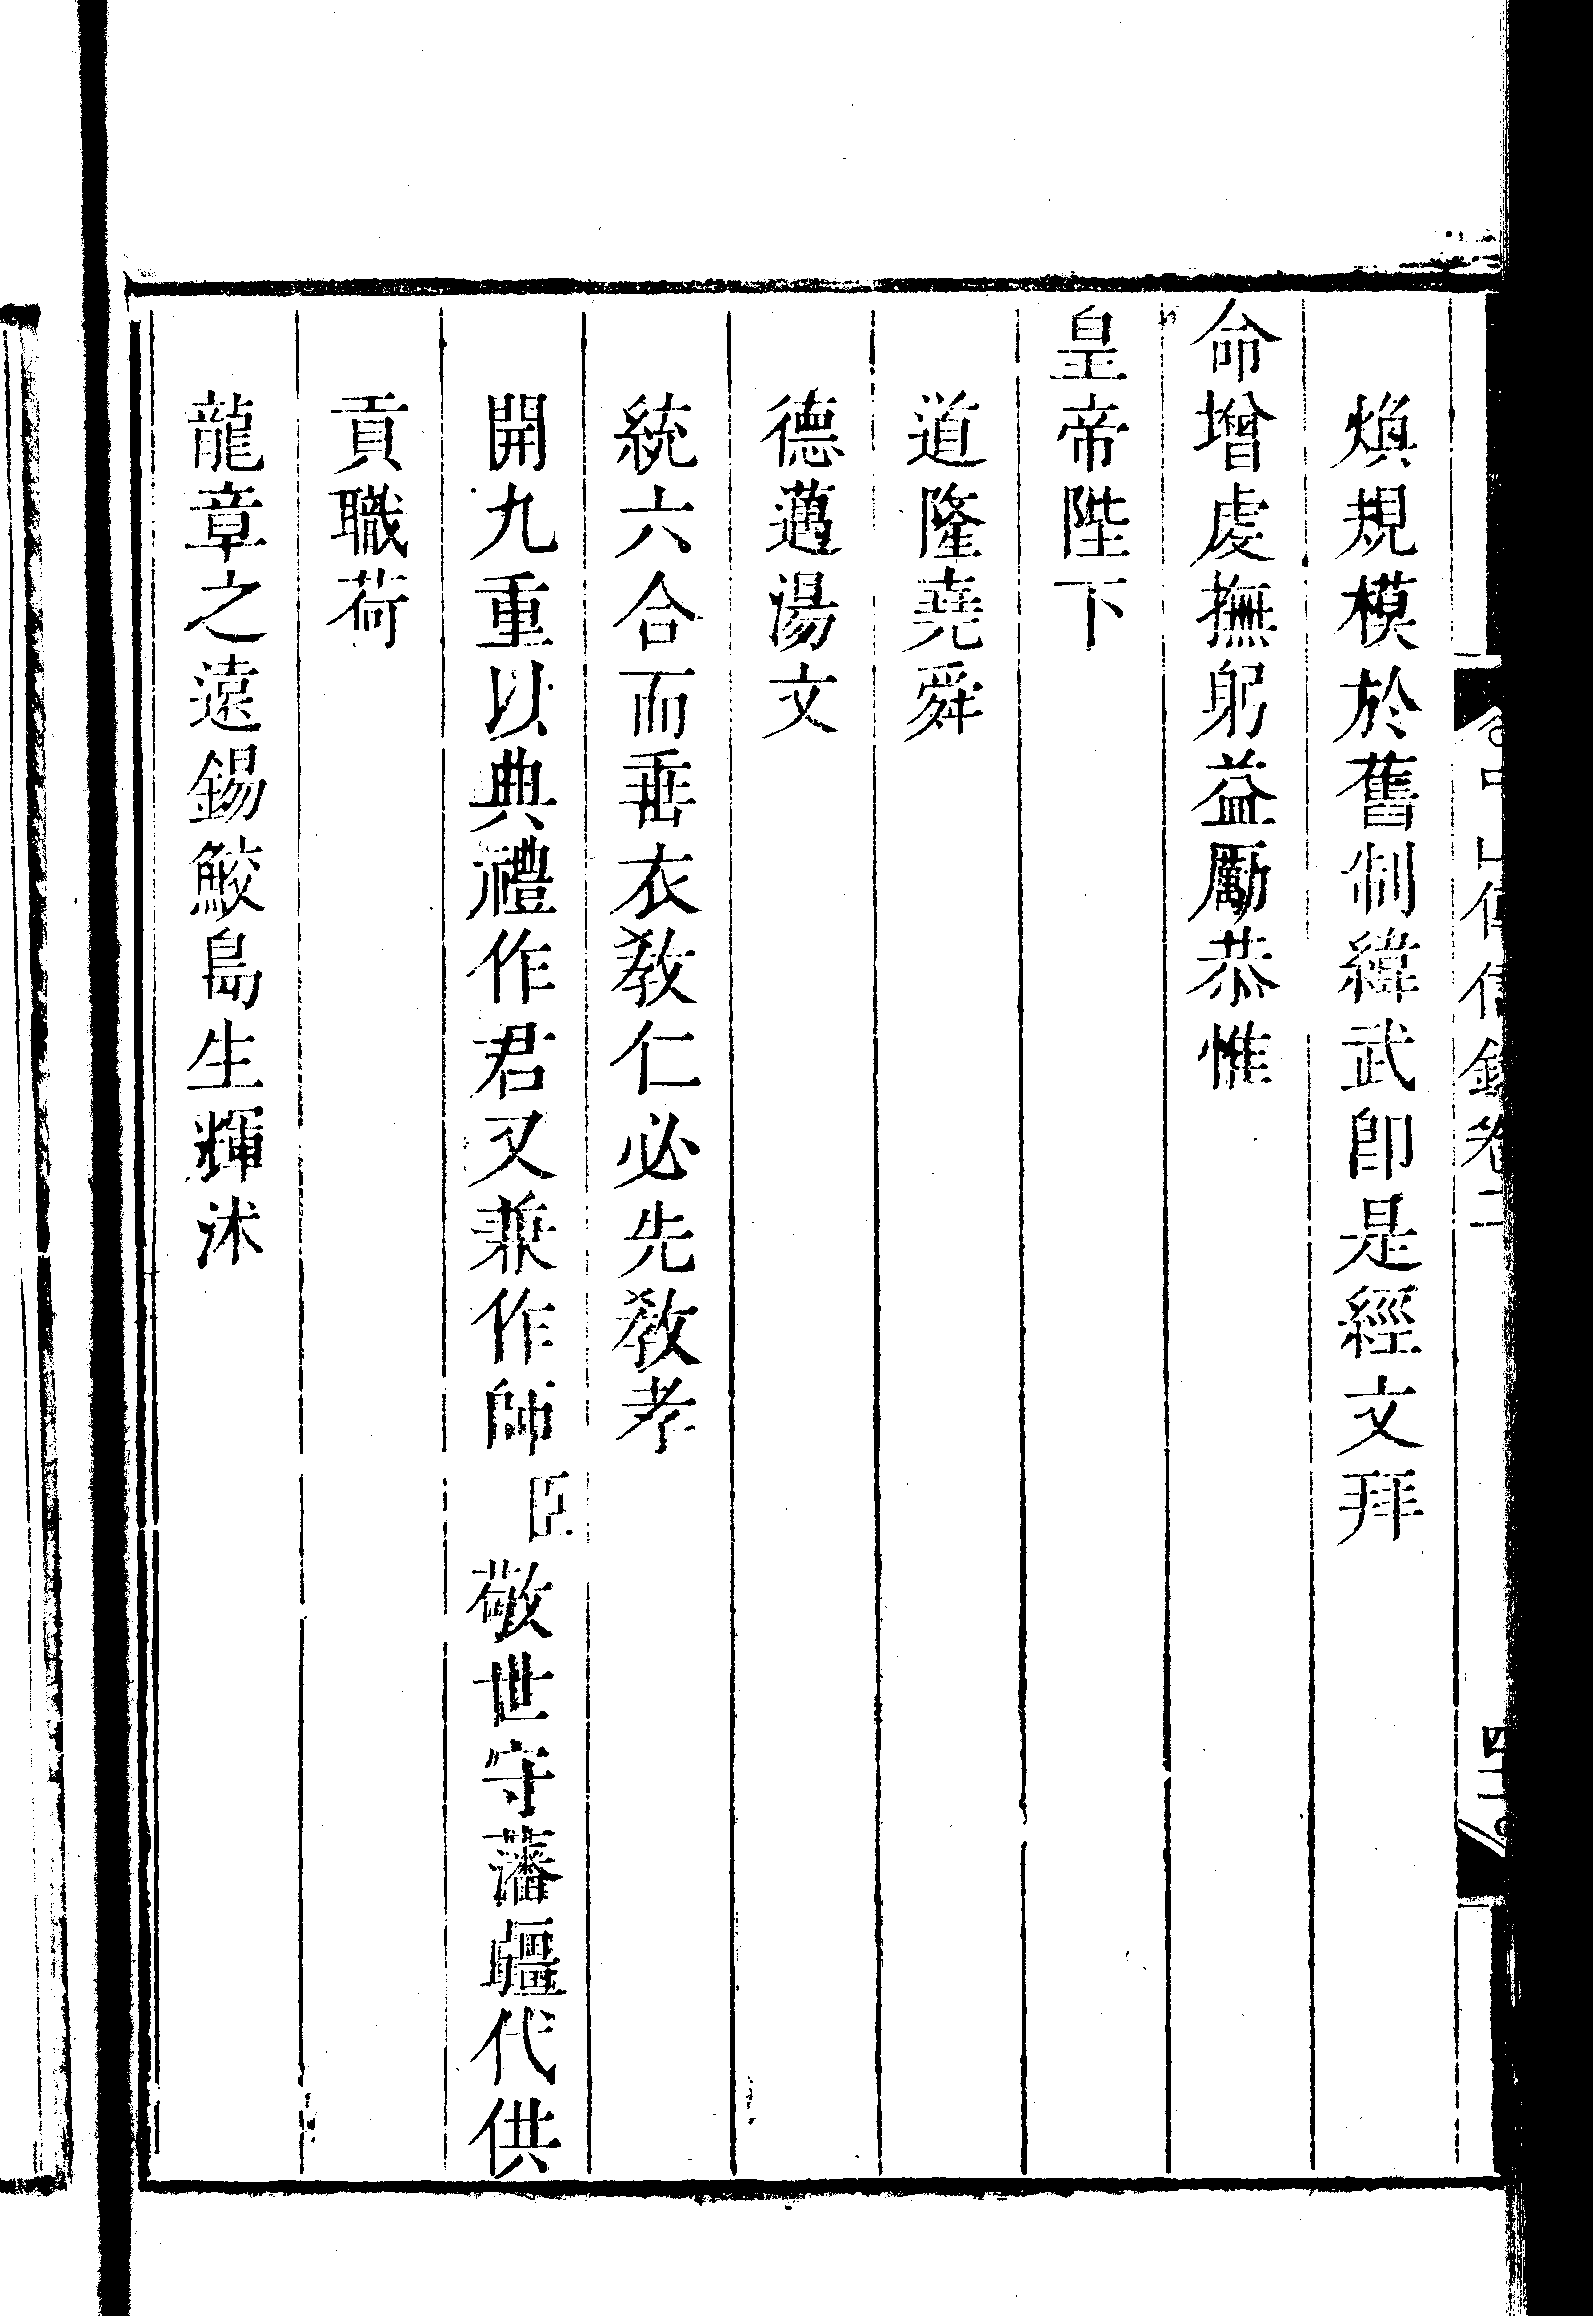 中山傳信錄卷二
四二
煥規模於舊制緯武即是經文拜
命增虔撫躬益勵恭惟
皇帝陛下
道隆堯舜
德邁湯文
統六合而垂衣教仁必先教孝
開九重以典禮作君又兼作師臣敬世守藩疆代供
貢職荷
龍章之遠錫鮫島生輝沐